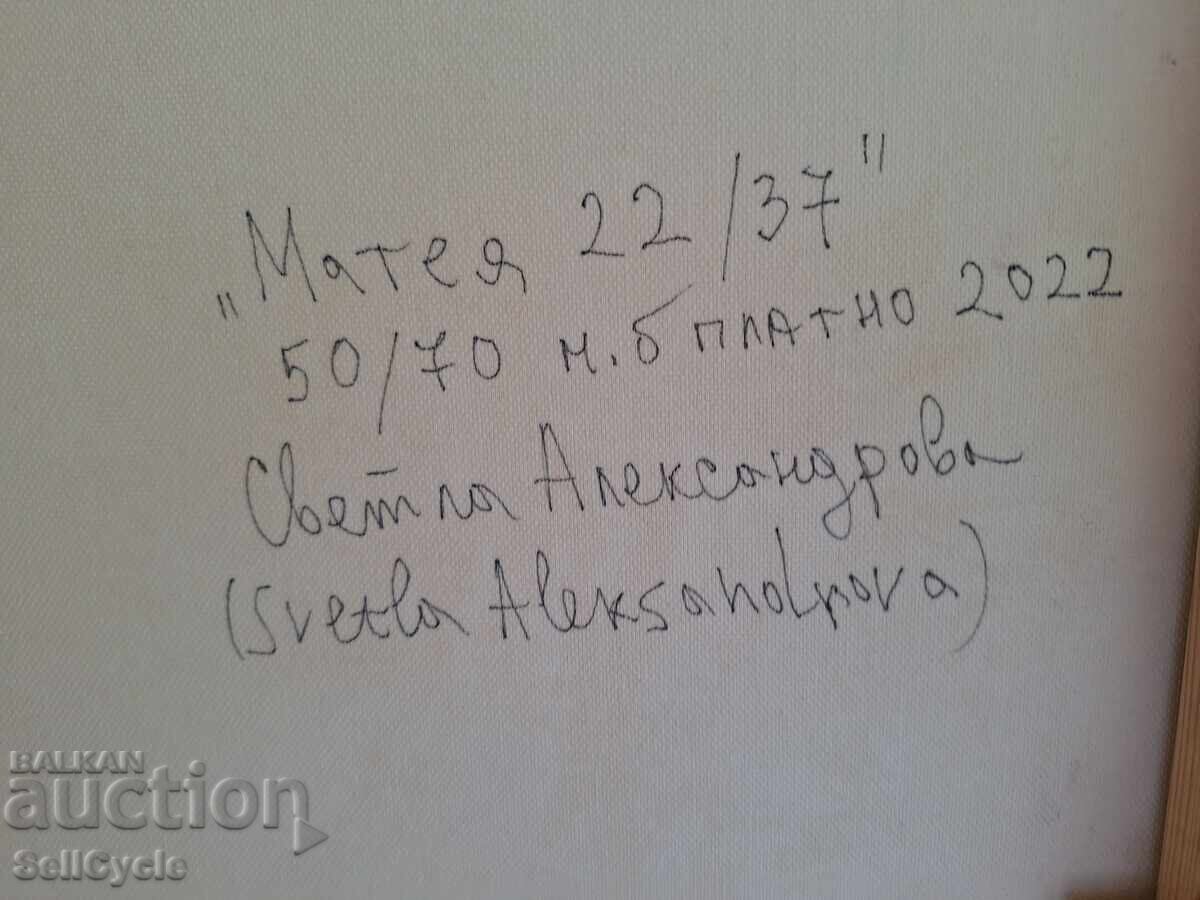 „Матея 22/37"
50/70 м.б платно 2022
Светла Александрова
(Svetla Aleksandrova)
BALKAN
auction
SellCycle